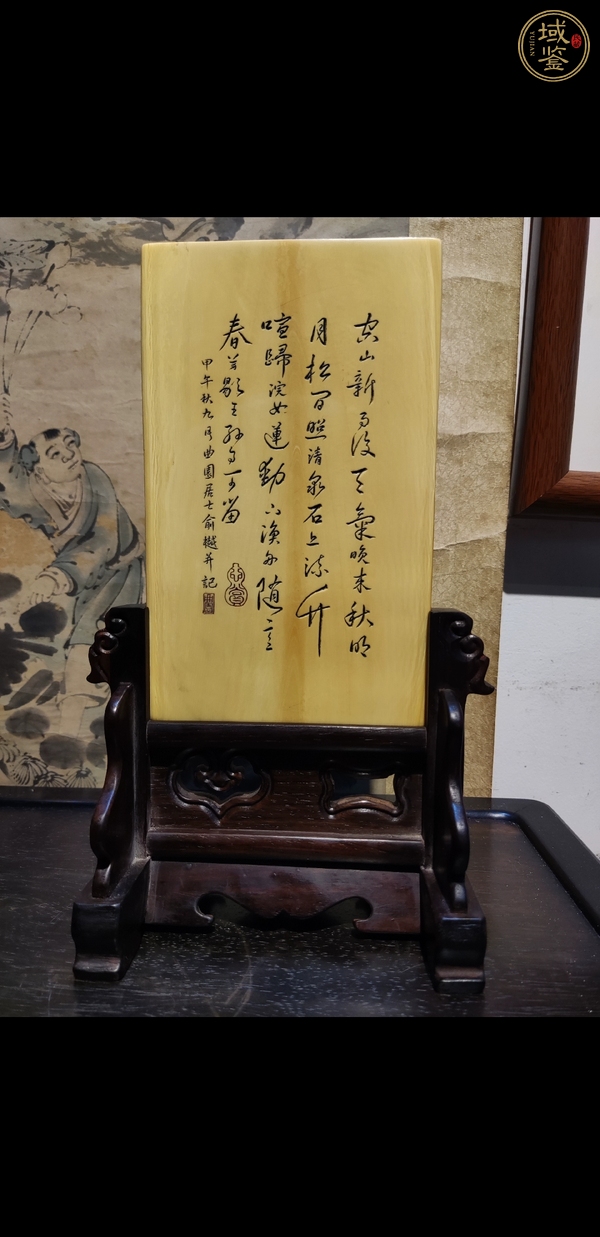 空山新雨後天氣晚来秋明
月松間照清泉石上流竹
喧歸浣女蓮動下漁舟随意
春芳歇王孫自可留
甲午秋九月曲園居士俞樾并記
域鉴
YUJIAN